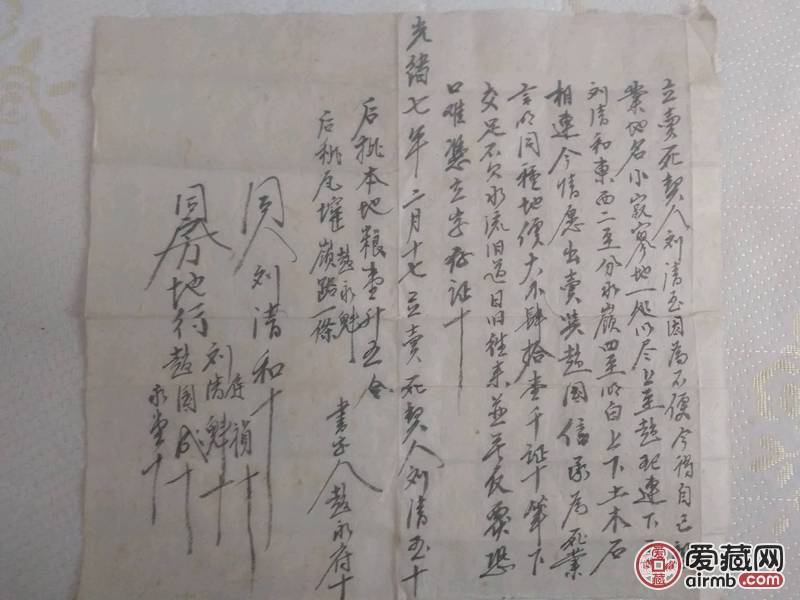 立卖死契人刘清玉因为不便今将自己
业地名小寂寥地一处以尽上至赵 连下
刘清和東西二至分水嶺四至明白上下土木石
相連今情愿出卖與赵国信承为死業
言明同種地價大小肆拾壹千证十筆下
交足不欠水流旧道日旧往来並無反悔恐
口难憑立字存证十
光緒七年二月十七立卖死契人刘清玉十
后批本地粮壹升五合
后批瓦 嶺路一條 赵永魁
書字人赵永府十
同人刘清和十
同房地行
刘清魁十
赵国成十
永 十
爱藏网
airmb.com